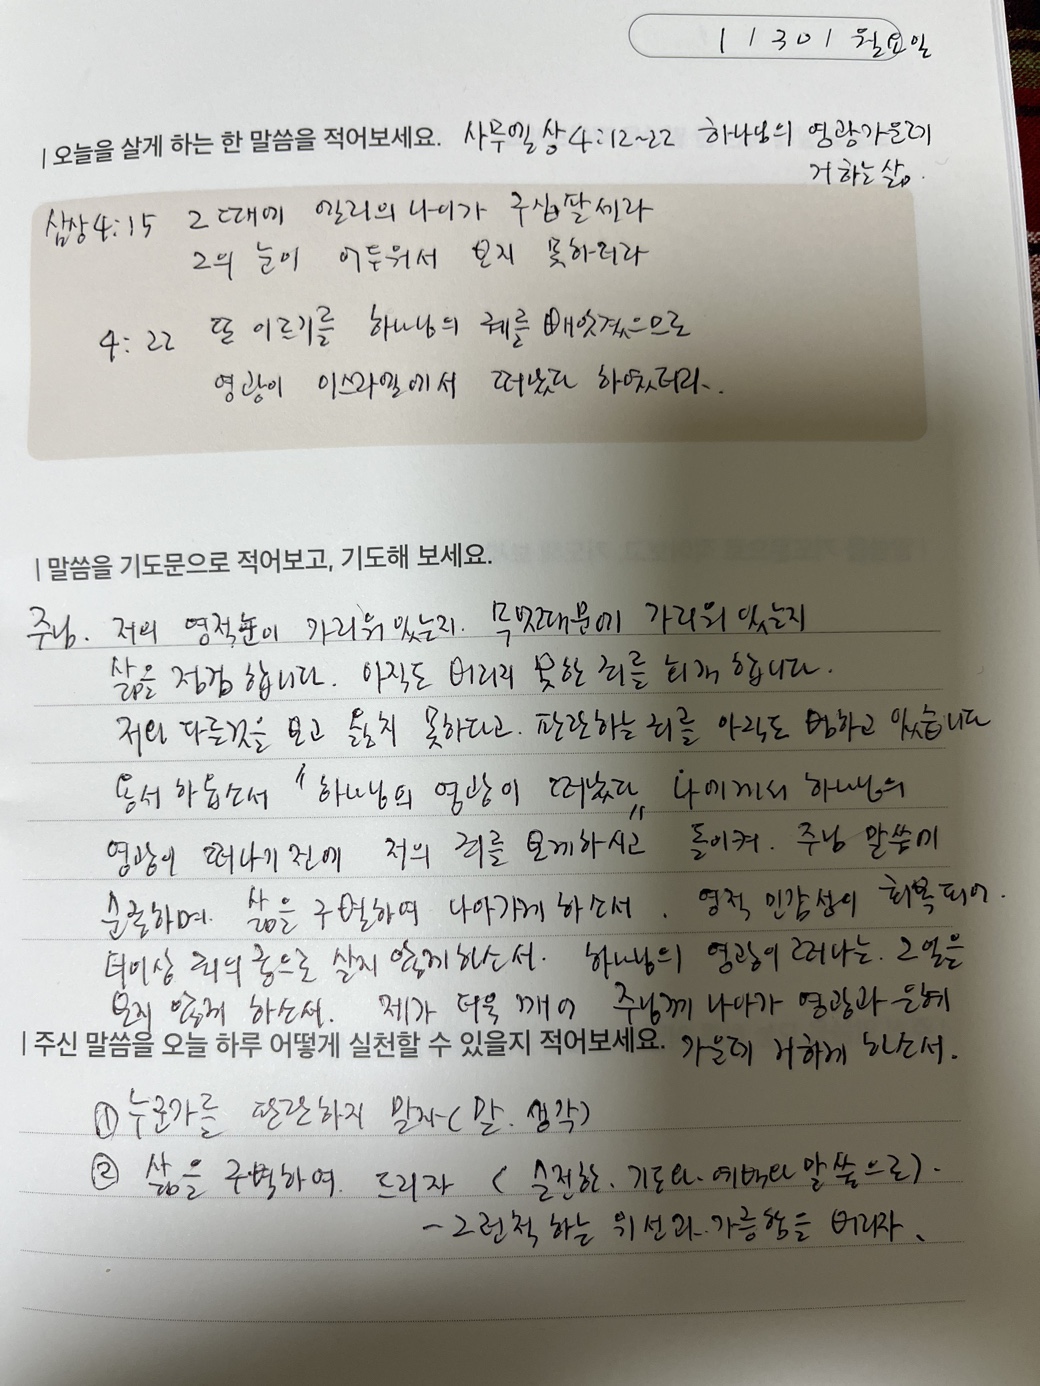 11 30 1 월요일
| 오늘을 살게 하는 한 말씀을 적어보세요. 사무엘상 4:12~22 하나님의 영광가운데
거하는 삶.
삼상4:15 그 때에 엘리의 나이가 구십팔세라
그의 눈이 어두워서 보지 못하더라
4:22 또 이르기를 하나님의 궤를 빼앗겼으므로
영광이 이스라엘에서 떠났다 하였더라.
| 말씀을 기도문으로 적어보고, 기도해 보세요.
주님. 저의 영적눈이 가리워 있는지. 무엇때문에 가리워 있는지
삶을 점검합니다. 아직도 버리지 못한 죄를 회개합니다.
저와 다른것을 보고 옳치 못하다고. 판단하는 죄를 아직도 범하고 있습니다
용서 하옵소서 "하나님의 영광이 떠났다" 나에게서 하나님의
영광이 떠나기 전에 저의 죄를 보게하시고 돌이켜. 주님 말씀에
순종하며. 삶을 구별하여 나아가게 하소서. 영적 민감성이 회복되어.
더이상 죄의 종으로 살지 않게하소서. 하나님의 영광이 떠나는. 그 일을
보지 않게 하소서. 제가 더욱 깨어 주님께 나아가 영광과 은혜
| 주신 말씀을 오늘 하루 어떻게 실천할 수 있을지 적어보세요. 가운데 거하게 하소서.
① 누군가를 판단하지 말자 (말. 생각)
② 삶을 구별하여. 드리자 (온전한. 기도와. 예배와 말씀으로).
- 그런척 하는 위선과. 가증함을 버리자.